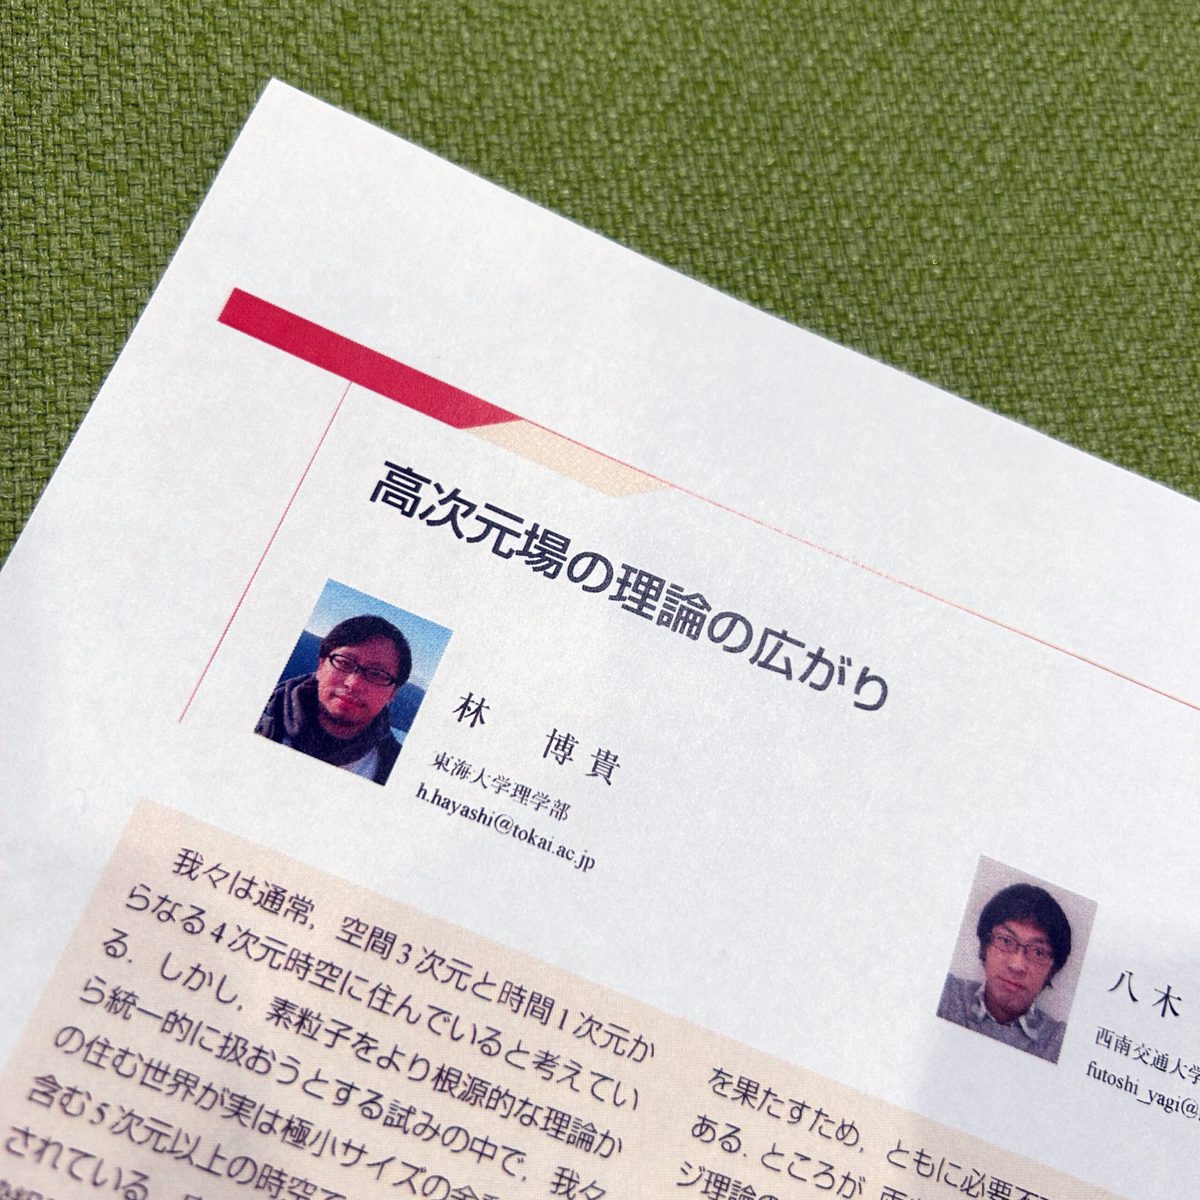 高次元場の理論の広がり
林 博貴
東海大学理学部
h.hayashi@tokai.ac.jp
八木
西南交通大学
futoshi_yagi@
我々は通常，空間3次元と時間1次元か
らなる4次元時空に住んでいると考えてい
る．しかし，素粒子をより根源的な理論か
ら統一的に扱おうとする試みの中で，我々
の住む世界が実は極小サイズの余
含む5次元以上の時空で
されている．
を果たすため，ともに必要不
ある．ところが，
ジ理論の